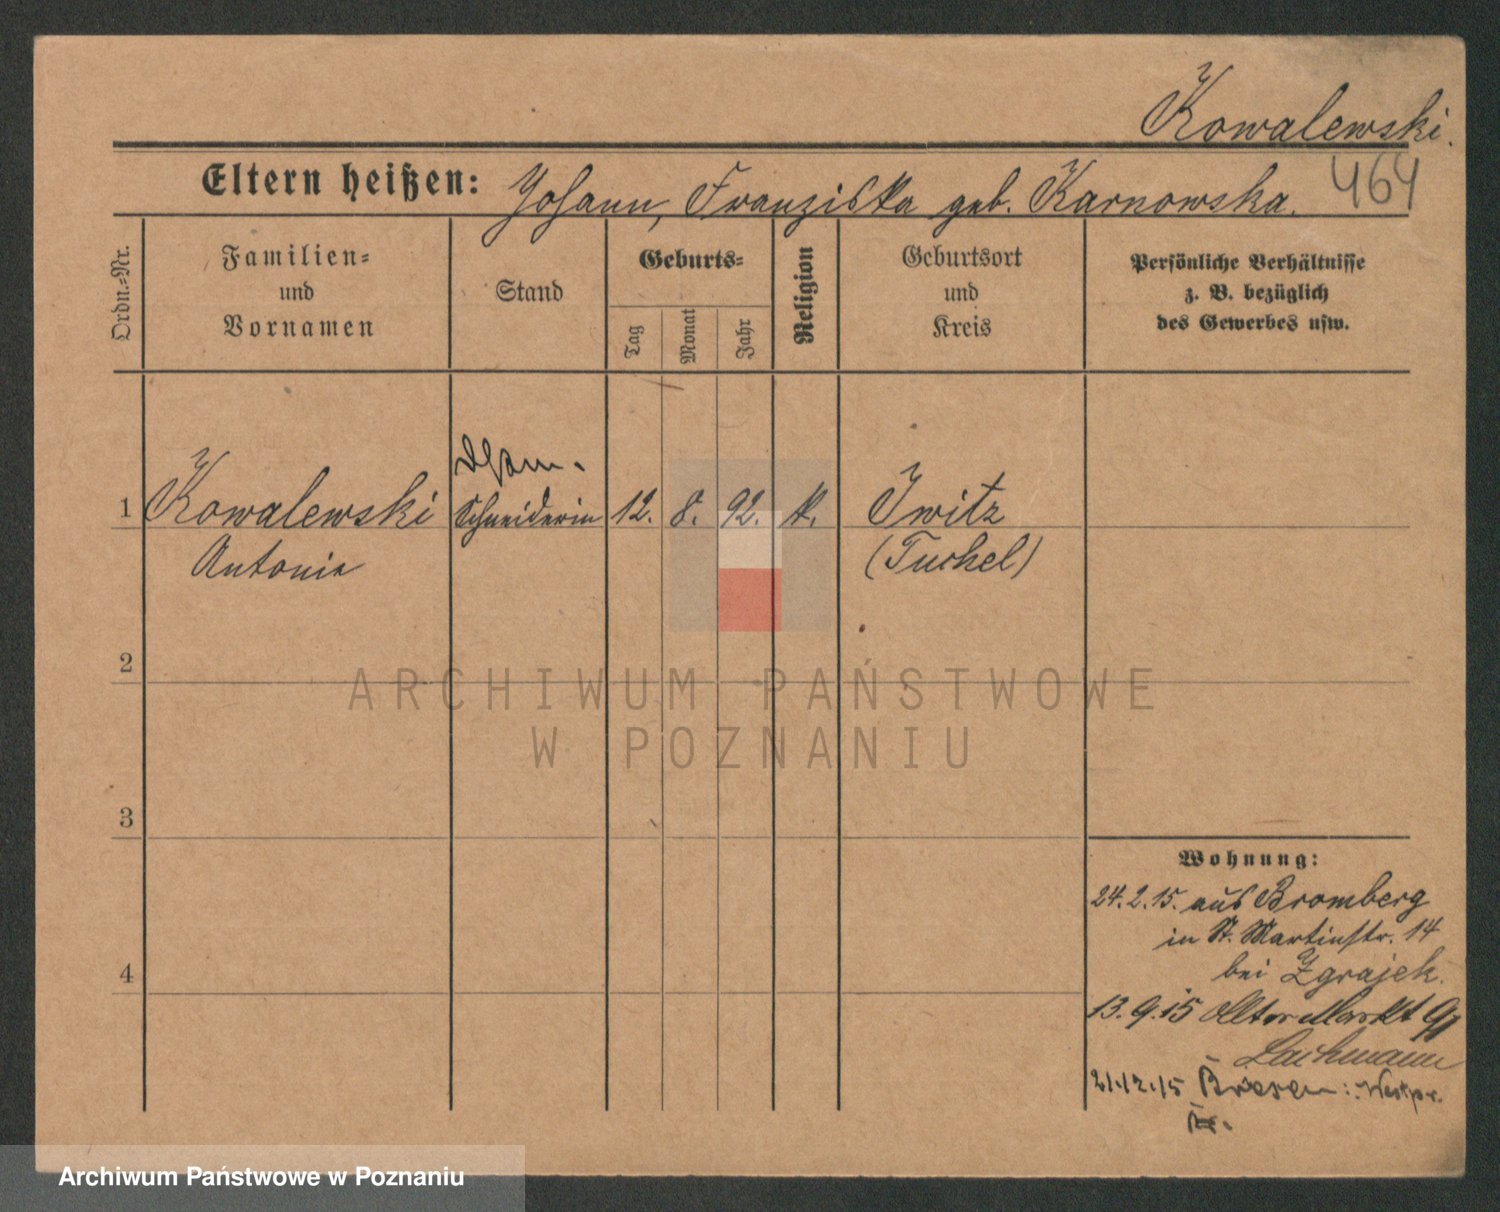 Kowalewski.
464
Eltern heißen: Johann, Franziska geb. Karnowska.
Ordn.-Nr.
Familien-
und
Vornamen
Stand
Geburts-
Tag
Monat
Jahr
Religion
Geburtsort
und
Kreis
Persönliche Verhältnisse
z. B. bezüglich
des Gewerbes usw.
1 Kowalewski Schneiderin 12. 8. 92. k. Iwitz
Antonie (Tuchel)
2
3
4
Wohnung:
24.2.15. aus Bromberg
in St. Martinstr. 14
bei Zgrajek.
13.9.15 Alter Markt 91
Lachmann
21.12.15 Briesen: Westpr.
ARCHIWUM PAŃSTWOWE
W POZNANIU
Archiwum Państwowe w Poznaniu